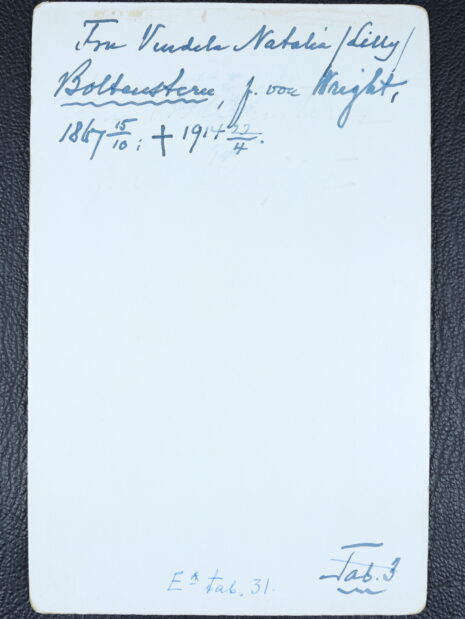 Fru Vendela Natalia /Lilly/
Boltenstern, f. von Wright,
1867 15/10; † 1914 22/4.
Tab. 3
E* tab. 31.